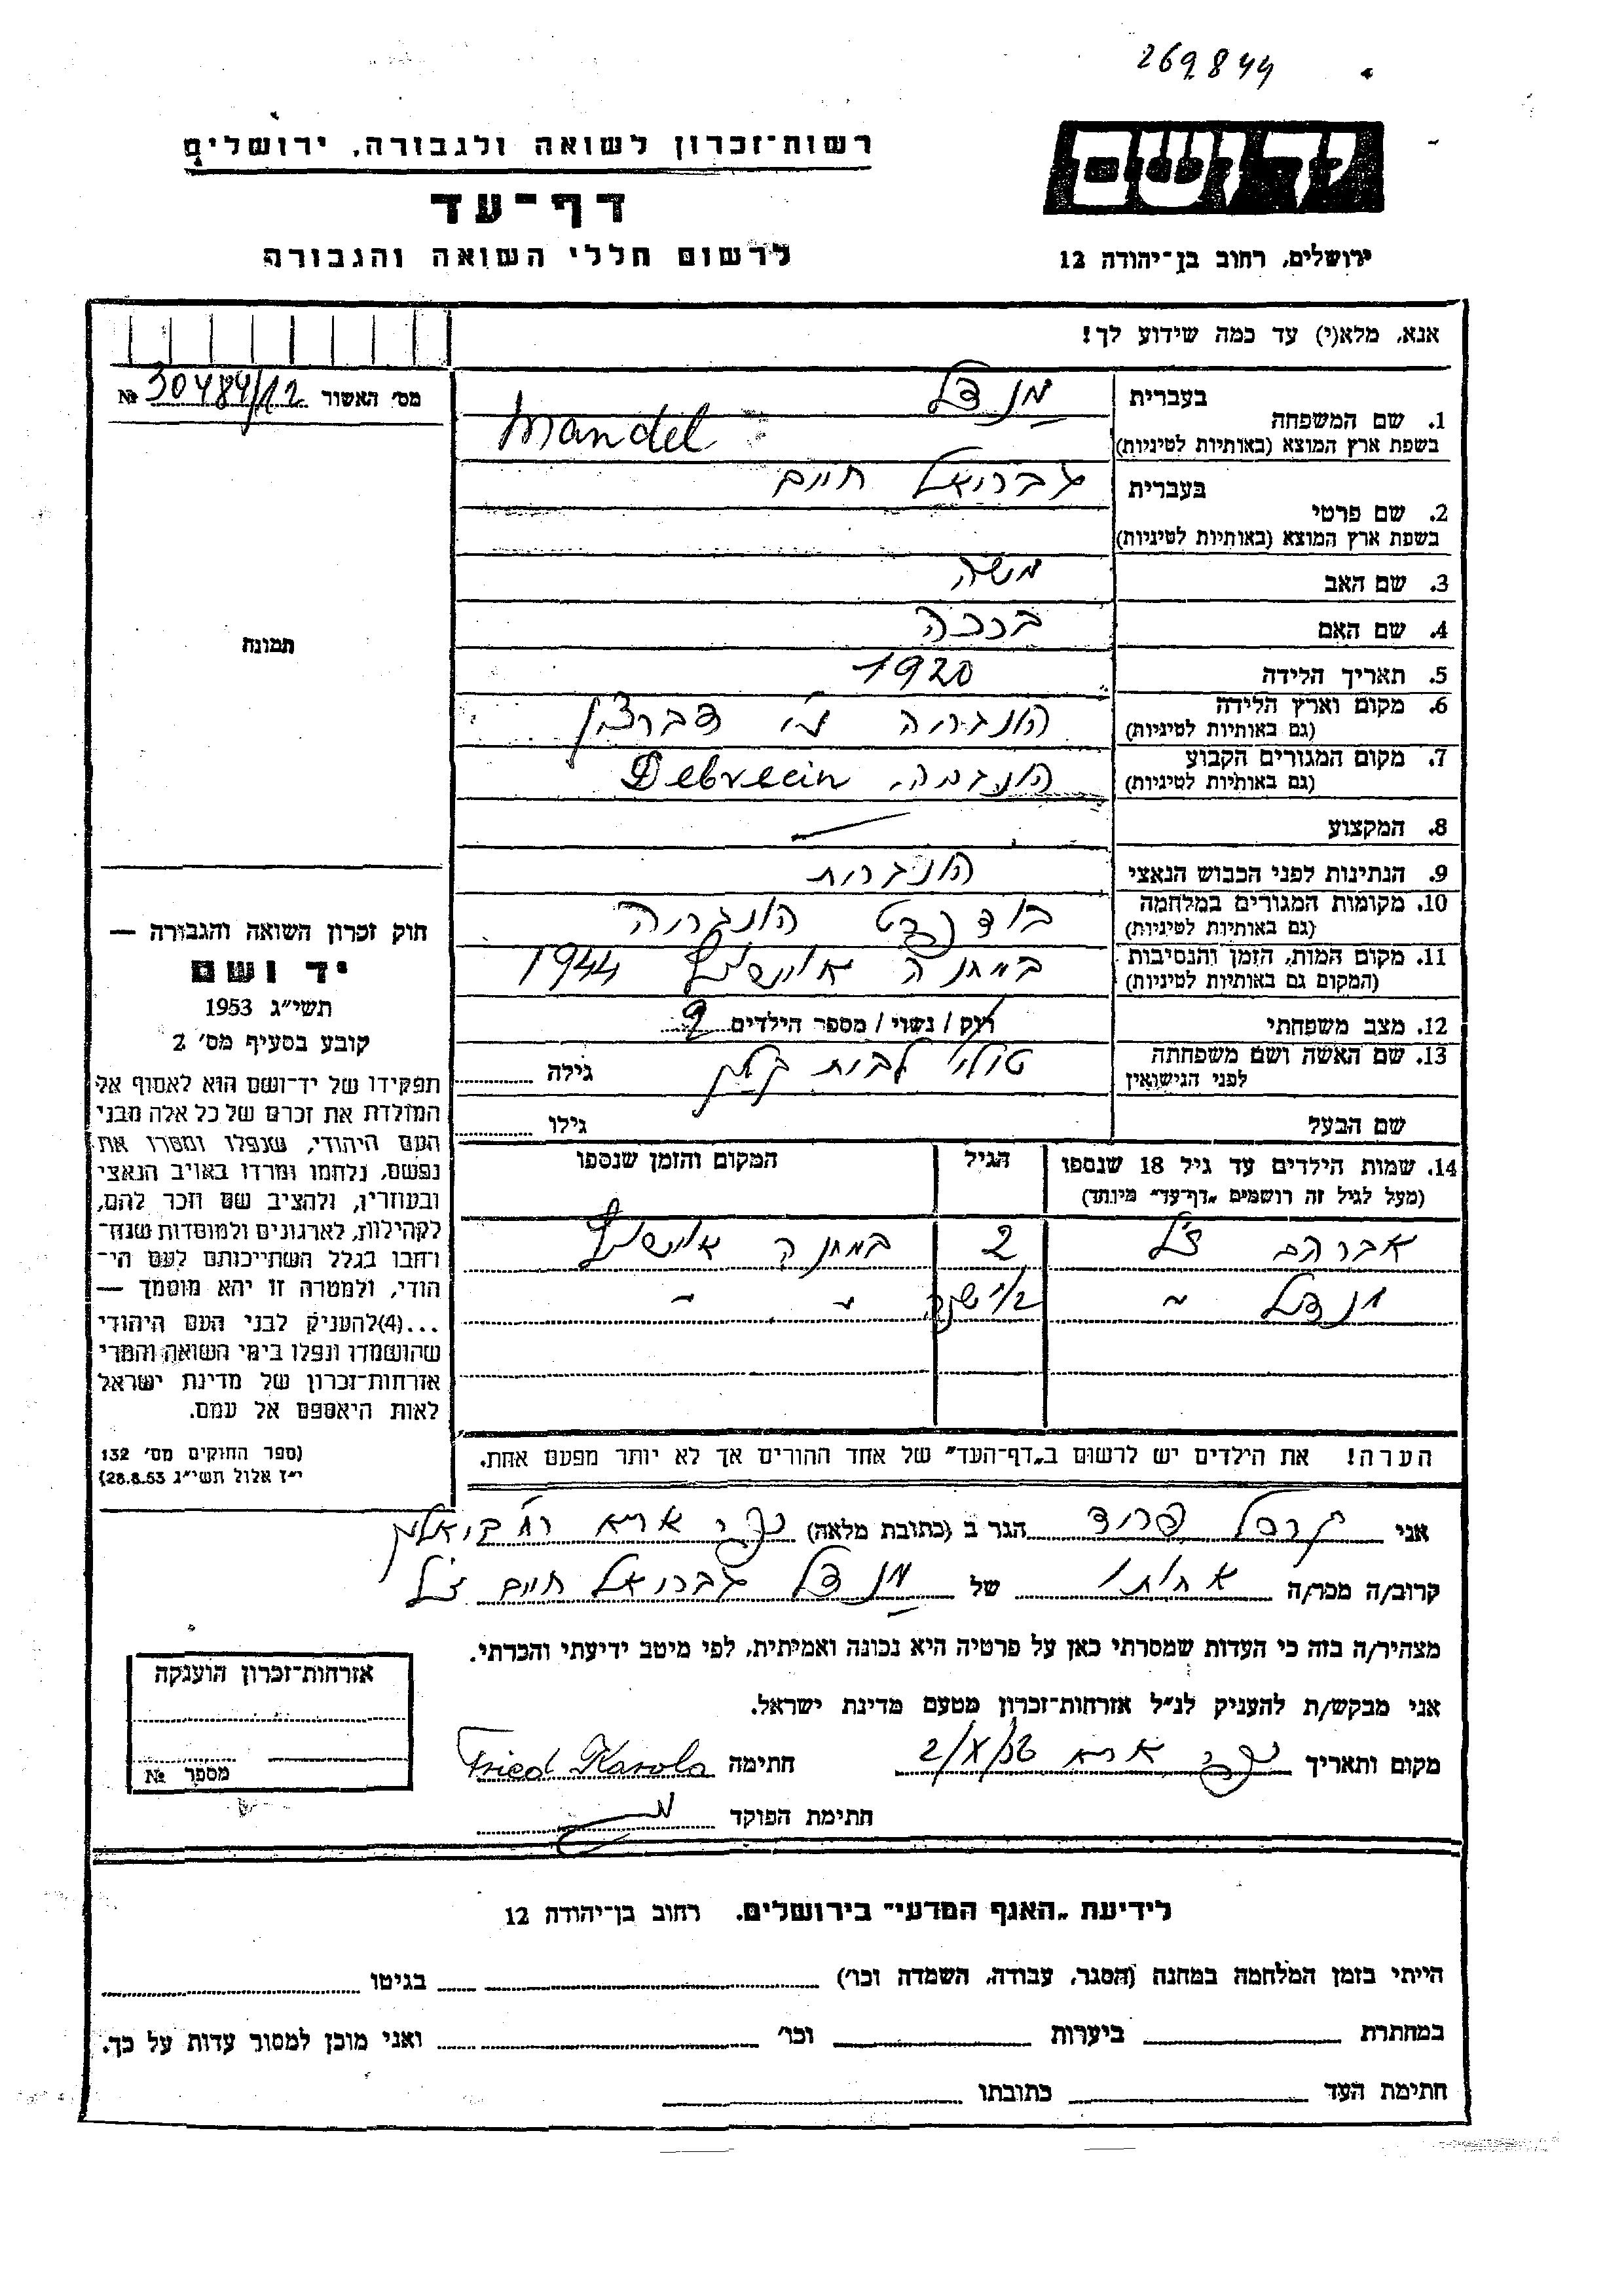 269844
רשות־זכרון לשואה ולגבורה, ירושלים
יד ושם
דף־עד
לרשום חללי השואה והגבורה
ירושלים, רחוב בן־יהודה 12
אנא, מלא(י) עד כמה שידוע לך!
מס׳ האשור № 30484/12
תמונה
1. שם המשפחה בעברית מנדל
בשפת ארץ המוצא (באותיות לטיניות) Mandel
2. שם פרטי בעברית גבריאל חיים
בשפת ארץ המוצא (באותיות לטיניות)
3. שם האב משה
4. שם האם ברכה
5. תאריך הלידה 1920
6. מקום וארץ הלידה (גם באותיות לטיניות) הונגריה דברצין
7. מקום המגורים הקבוע (גם באותיות לטיניות) הונגריה, Debrecin
8. המקצוע —
9. הנתינות לפני הכבוש הנאצי הונגרית
10. מקומות המגורים במלחמה (גם באותיות לטיניות) הונגריה
11. מקום המות, הזמן והנסיבות (המקום גם באותיות לטיניות) במחנה אושויץ 1944
12. מצב משפחתי רווק / נשוי / מספר הילדים 2
13. שם האשה ושם משפחתה לפני הנישואין לבית גילה
שם הבעל גילו
14. שמות הילדים עד גיל 18 שנספו (מעל לגיל זה רושמים „דף־עד״ מיוחד) הגיל המקום והזמן שנספו
אברהם ז״ל 2 במחנה אושויץ
" 1/2 שנה " "
הערה! את הילדים יש לרשום ב„דף־העד״ של אחד ההורים אך לא יותר מפעם אחת.
חוק זכרון השואה והגבורה —
יד ושם
תשי״ג 1953
קובע בסעיף מס׳ 2
תפקידו של יד־ושם הוא לאסוף אל
המולדת את זכרם של כל אלה מבני
העם היהודי, שנפלו ומסרו את
נפשם, נלחמו ומרדו באויב הנאצי
ובעוזריו, ולהציב שם וזכר להם,
לקהילות, לארגונים ולמוסדות שנח־
רבו בגלל השתייכותם לעם הי־
הודי, ולמטרה זו יהא מוסמך —
...(4)להעניק לבני העם היהודי
שהושמדו ונפלו בימי השואה והמרי
אזרחות־זכרון של מדינת ישראל
לאות היאספם אל עמם.
(ספר החוקים מס׳ 132
י״ז אלול תשי״ג 28.8.53)
אני פריד הגר ב (כתובת מלאה) אתא רח׳
קרוב/ה מכר/ה אחותו של מנדל גבריאל חיים ז״ל
מצהיר/ה בזה כי העדות שמסרתי כאן על פרטיה היא נכונה ואמיתית, לפי מיטב ידיעתי והכרתי.
אני מבקש/ת להעניק לנ״ל אזרחות־זכרון מטעם מדינת ישראל.
מקום ותאריך אתא חתימה Fried Karola
חתימת הפוקד
אזרחות־זכרון הוענקה
מספר №
לידיעת „האגף המדעי״ בירושלים, רחוב בן־יהודה 12
הייתי בזמן המלחמה במחנה (הסגר, עבודה, השמדה וכו׳) בגיטו
במחתרת ביערות וכו׳ ואני מוכן למסור עדות על כך.
חתימת העד כתובתו